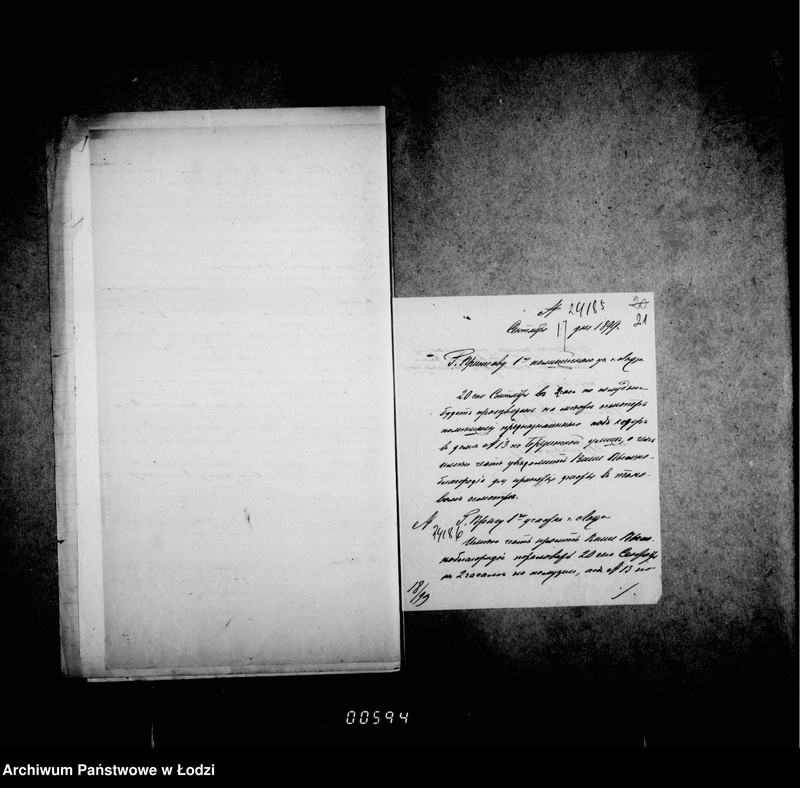 № 24185
20
21
Сентября 17 дня 1899.
Г. Приставу 1го полицейского уч. г. Лодзи
20 сего Сентября в 2 часа по полудни
будет произведен на месте осмотр
помещения предназначенного под хедер
в доме № 13 по улице, о чем
имею честь уведомить Ваше Высоко-
благородие для принятия участия в тако-
вом осмотре.
№ 24186
Г. Врачу 1го участка г. Лодзи
Имею честь просить Ваше Высо-
коблагородие пожаловать 20 сего Сентября
в 2 часа по полудни, под № 13 по
18/99
./.
00594
Archiwum Państwowe w Łodzi